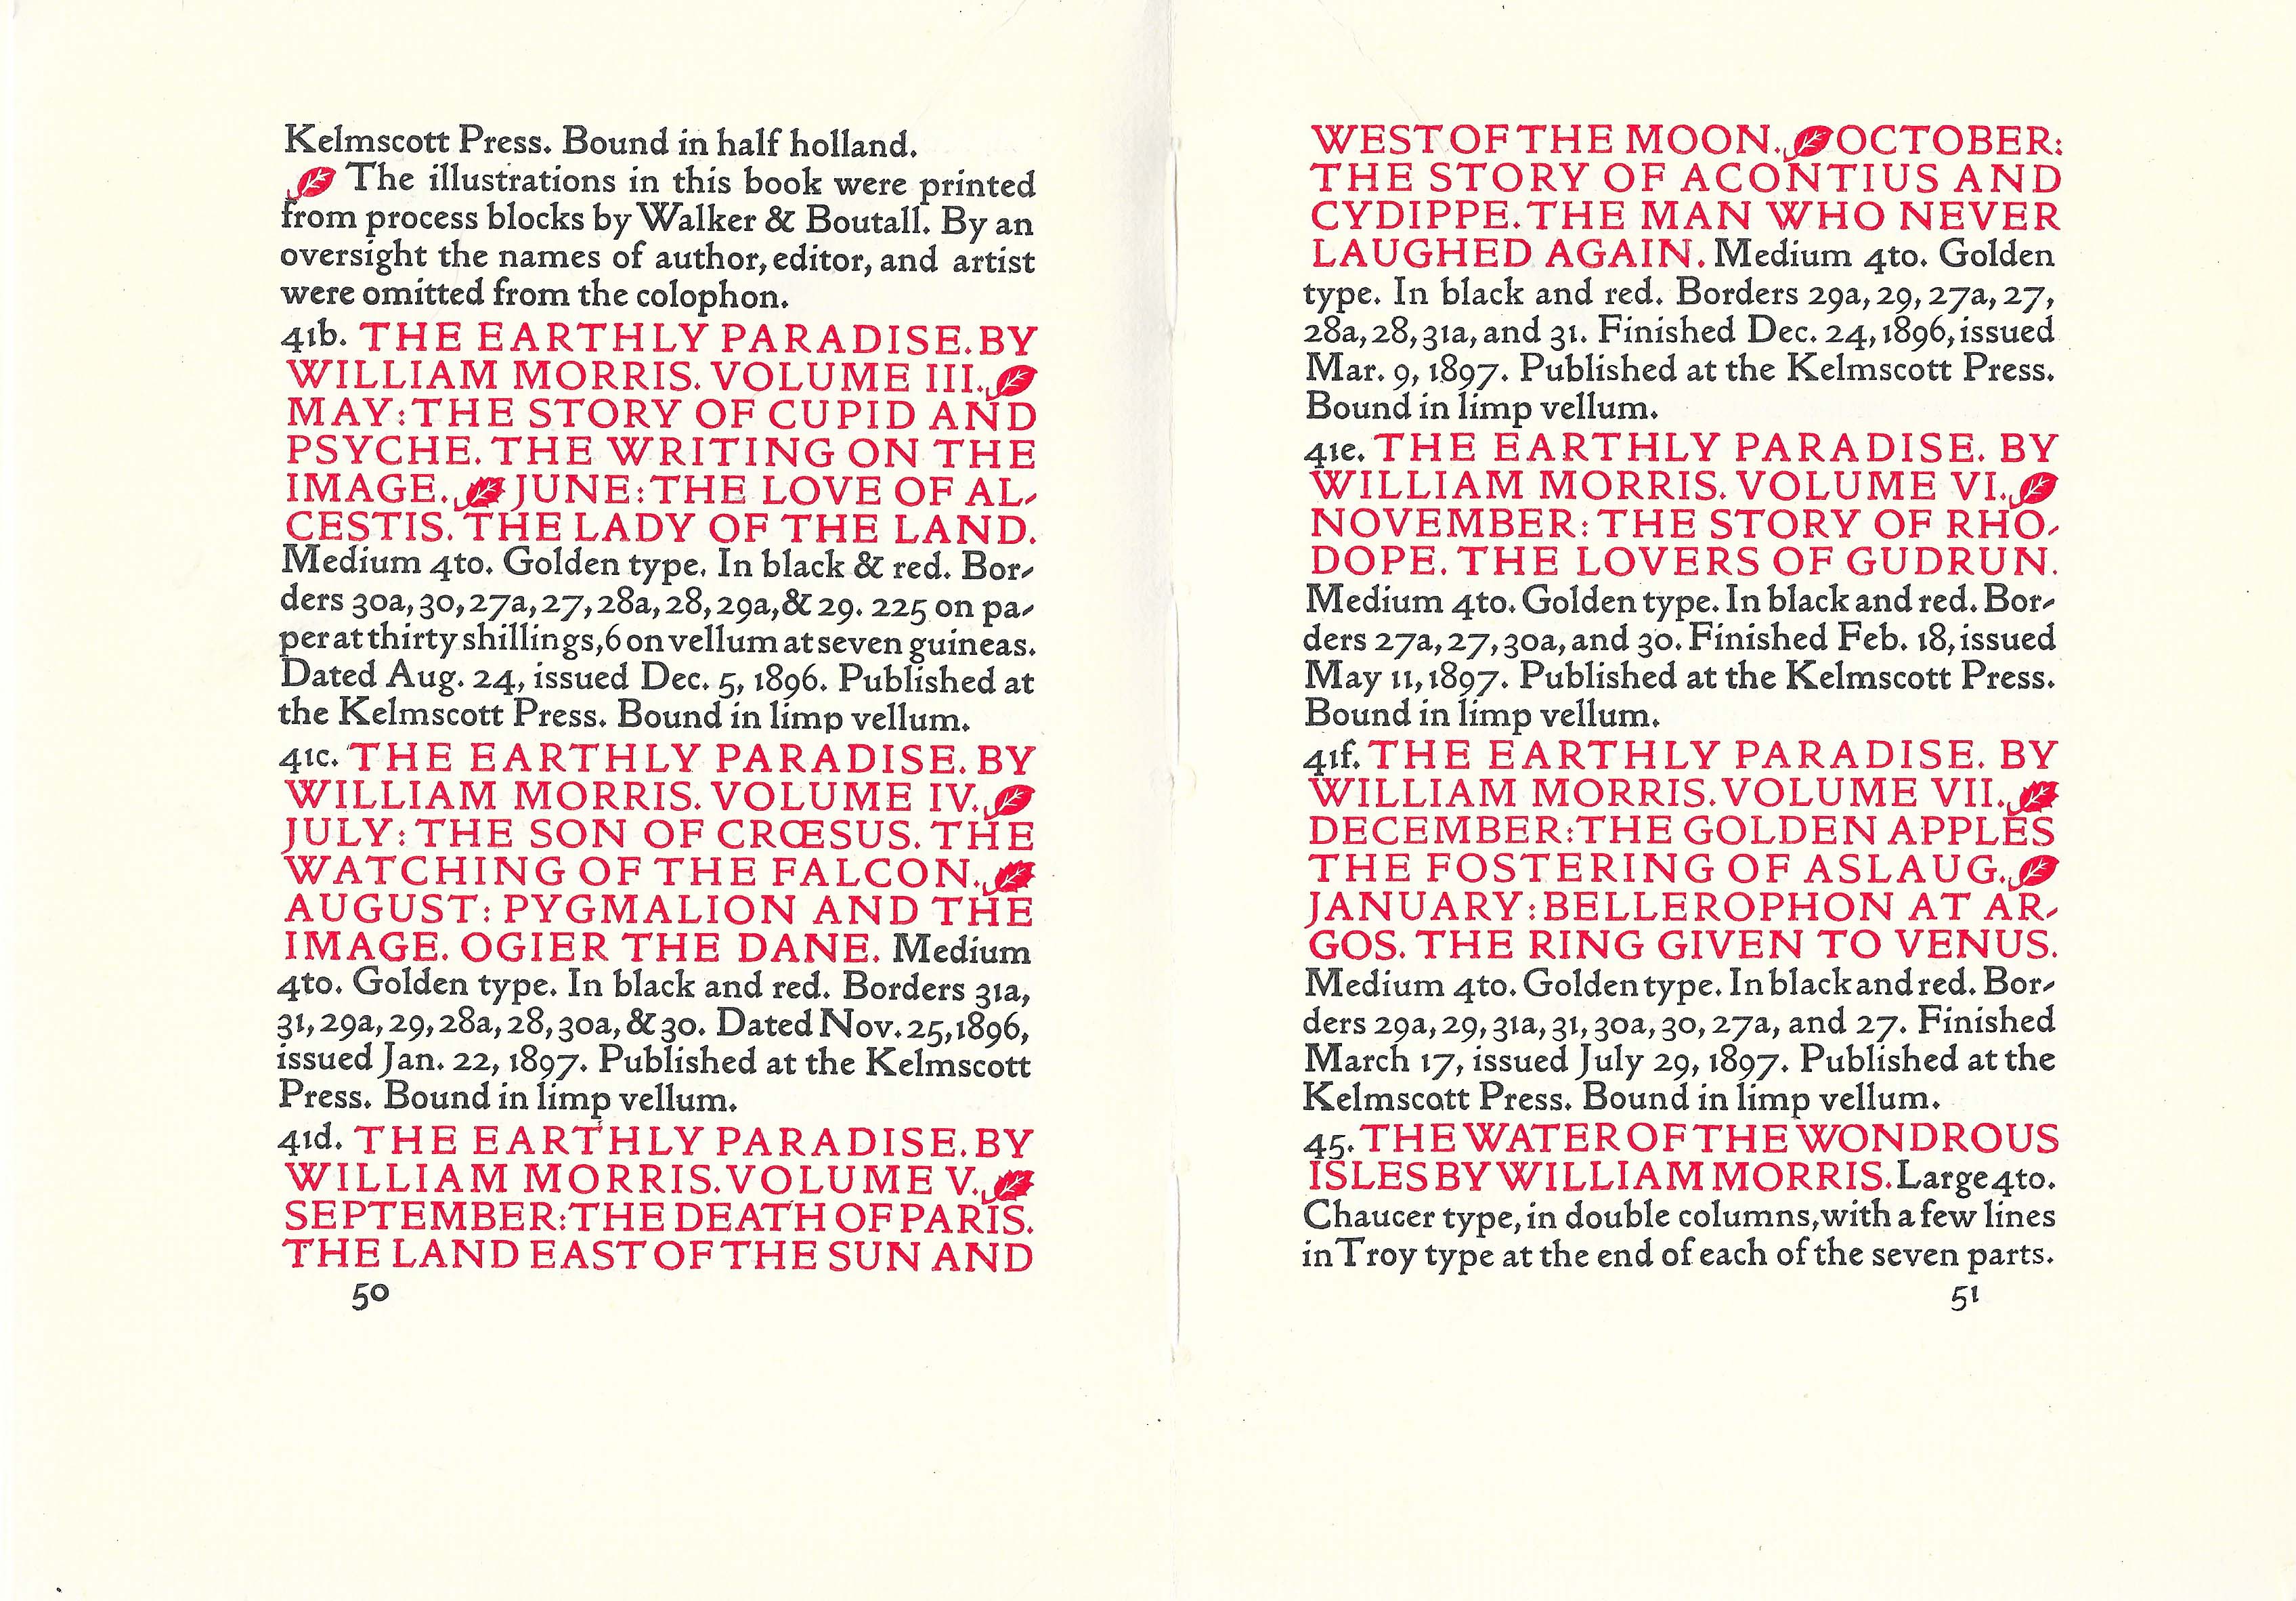 Kelmscott Press. Bound in half holland.
The illustrations in this book were printed
from process blocks by Walker & Boutall. By an
oversight the names of author, editor, and artist
were omitted from the colophon.
41b. THE EARTHLY PARADISE. BY
WILLIAM MORRIS. VOLUME III.
MAY: THE STORY OF CUPID AND
PSYCHE. THE WRITING ON THE
IMAGE. JUNE: THE LOVE OF AL-
CESTIS. THE LADY OF THE LAND.
Medium 4to. Golden type. In black & red. Bor-
ders 30a, 30, 27a, 27, 28a, 28, 29a, & 29. 225 on pa-
per at thirty shillings, 6 on vellum at seven guineas.
Dated Aug. 24, issued Dec. 5, 1896. Published at
the Kelmscott Press. Bound in limp vellum.
41c. THE EARTHLY PARADISE. BY
WILLIAM MORRIS. VOLUME IV.
JULY: THE SON OF CRŒSUS. THE
WATCHING OF THE FALCON.
AUGUST: PYGMALION AND THE
IMAGE. OGIER THE DANE. Medium
4to. Golden type. In black and red. Borders 31a,
31, 29a, 29, 28a, 28, 30a, & 30. Dated Nov. 25, 1896,
issued Jan. 22, 1897. Published at the Kelmscott
Press. Bound in limp vellum.
41d. THE EARTHLY PARADISE. BY
WILLIAM MORRIS. VOLUME V.
SEPTEMBER: THE DEATH OF PARIS.
THE LAND EAST OF THE SUN AND
50
WEST OF THE MOON. OCTOBER:
THE STORY OF ACONTIUS AND
CYDIPPE. THE MAN WHO NEVER
LAUGHED AGAIN. Medium 4to. Golden
type. In black and red. Borders 29a, 29, 27a, 27,
28a, 28, 31a, and 31. Finished Dec. 24, 1896, issued
Mar. 9, 1897. Published at the Kelmscott Press.
Bound in limp vellum.
41e. THE EARTHLY PARADISE. BY
WILLIAM MORRIS. VOLUME VI.
NOVEMBER: THE STORY OF RHO-
DOPE. THE LOVERS OF GUDRUN.
Medium 4to. Golden type. In black and red. Bor-
ders 27a, 27, 30a, and 30. Finished Feb. 18, issued
May 11, 1897. Published at the Kelmscott Press.
Bound in limp vellum.
41f. THE EARTHLY PARADISE. BY
WILLIAM MORRIS. VOLUME VII.
DECEMBER: THE GOLDEN APPLES
THE FOSTERING OF ASLAUG.
JANUARY: BELLEROPHON AT AR-
GOS. THE RING GIVEN TO VENUS.
Medium 4to. Golden type. In black and red. Bor-
ders 29a, 29, 31a, 31, 30a, 30, 27a, and 27. Finished
March 17, issued July 29, 1897. Published at the
Kelmscott Press. Bound in limp vellum.
45. THE WATER OF THE WONDROUS
ISLES BY WILLIAM MORRIS. Large 4to.
Chaucer type, in double columns, with a few lines
in Troy type at the end of each of the seven parts.
51